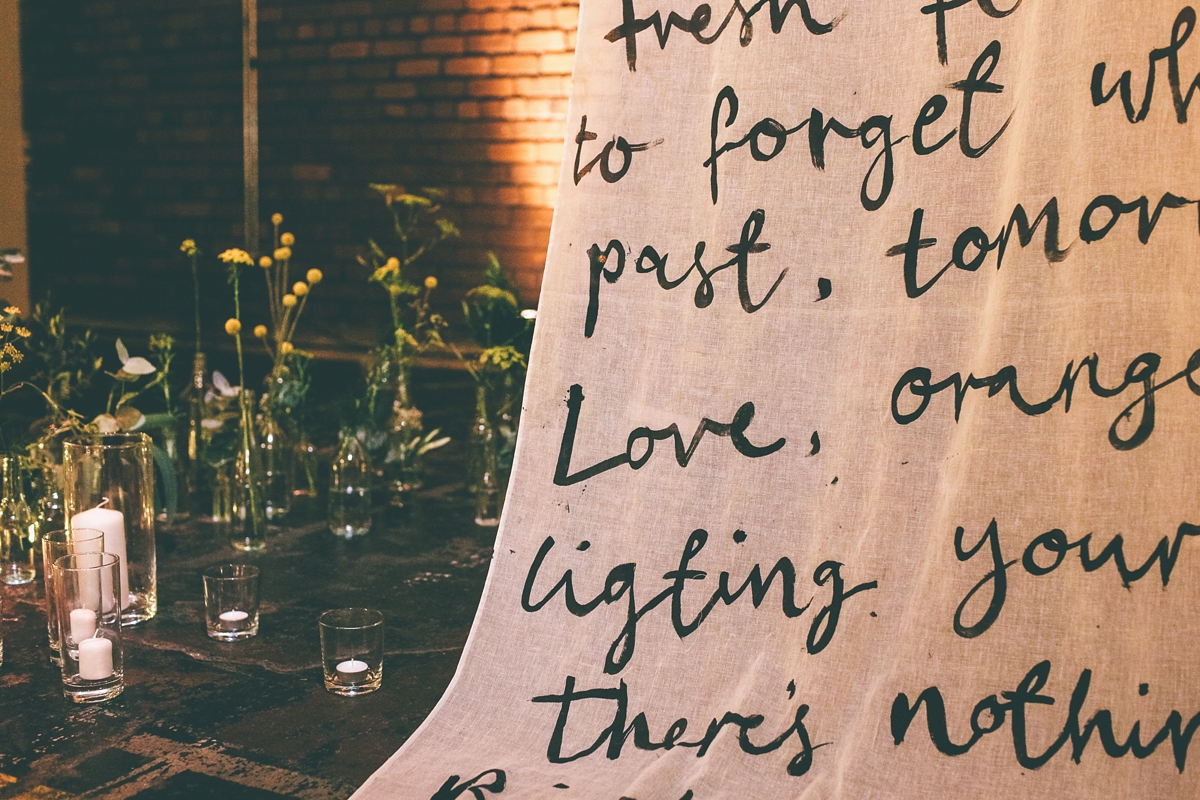 fresh
to forget
past, tomor
Love, orange
ligting your
there's nothin